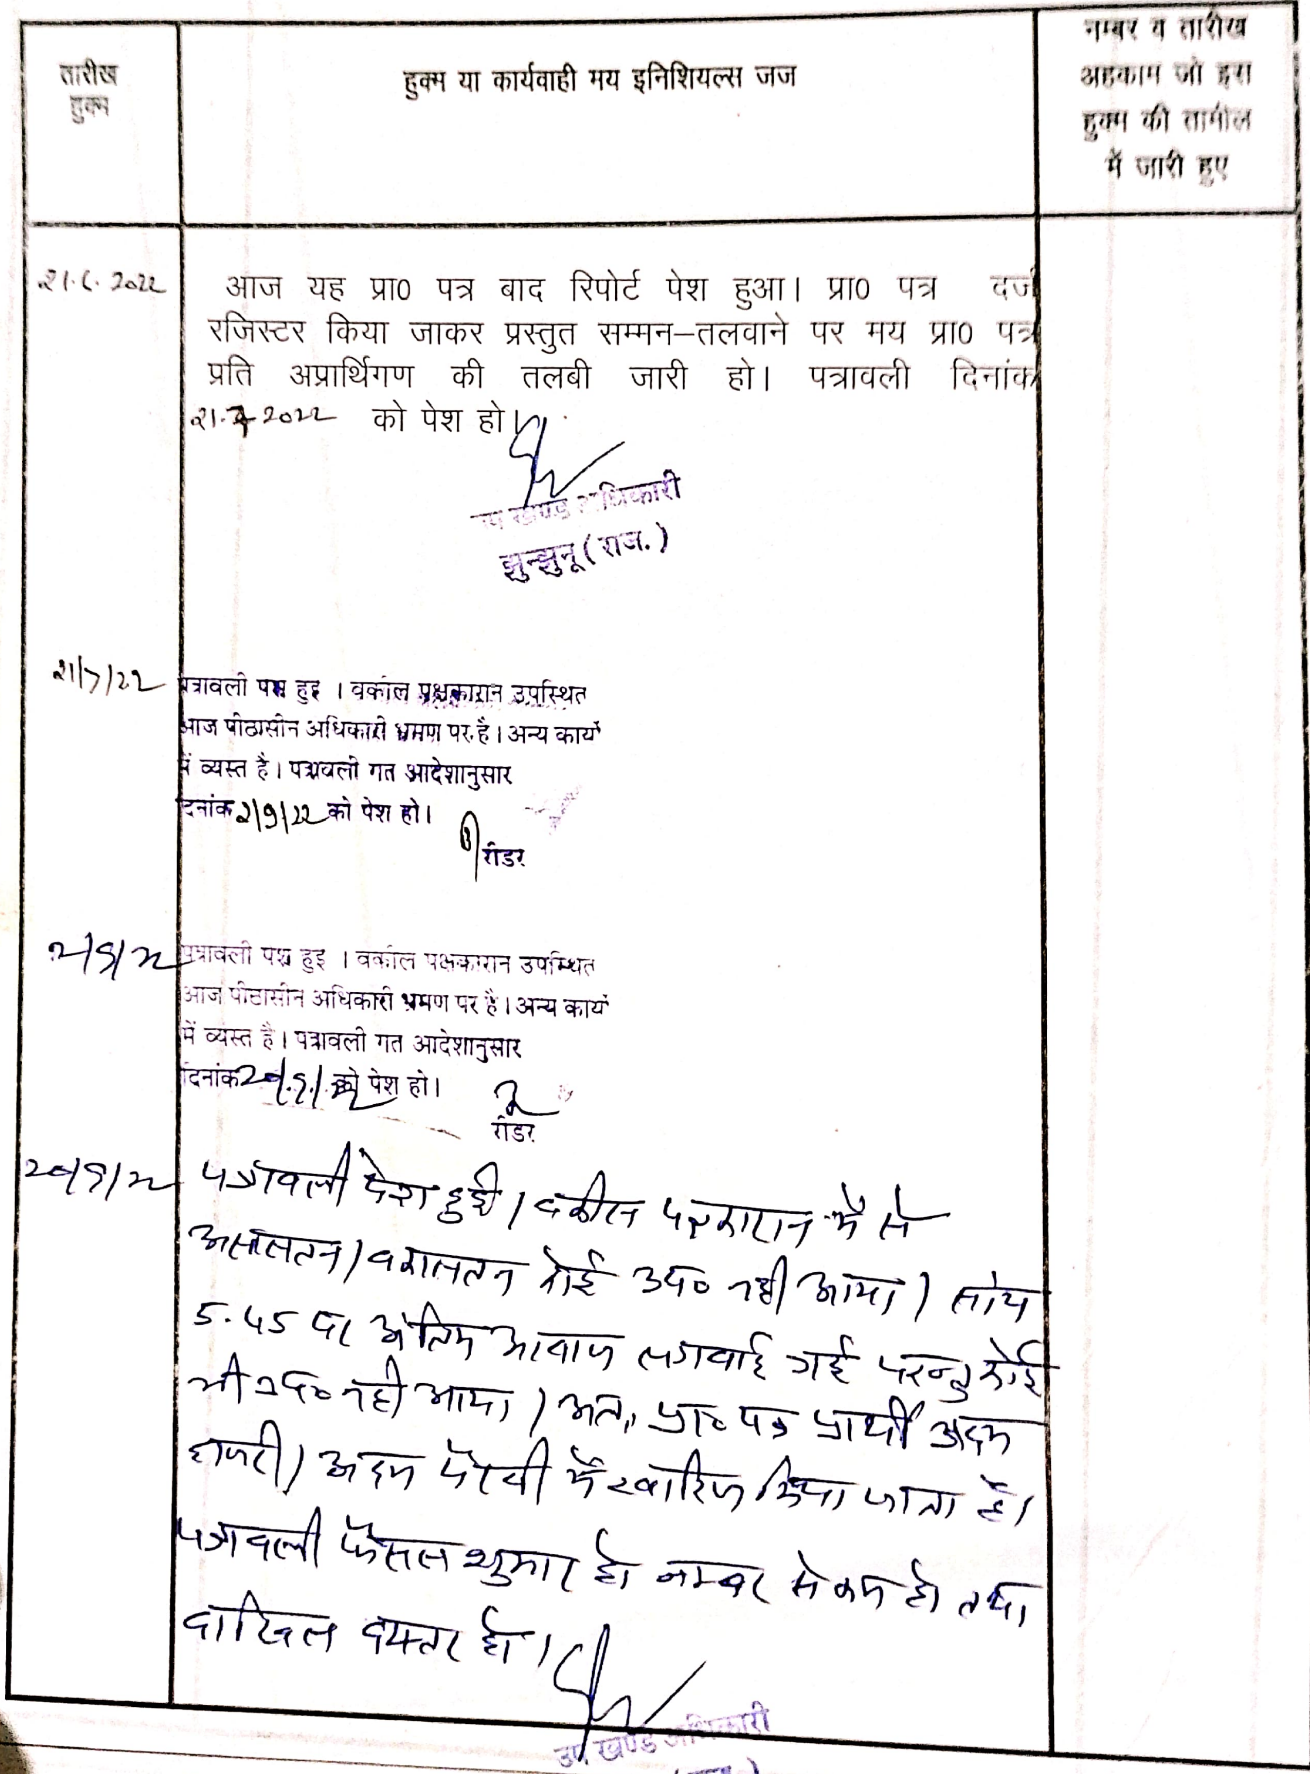 तारीख
हुक्म
हुक्म या कार्यवाही मय इनिशियल्स जज
नम्बर व तारीख
अहकाम जो इस
हुक्म की तामील
में जारी हुए
21.6.2022
आज यह प्रा0 पत्र बाद रिपोर्ट पेश हुआ। प्रा0 पत्र दर्ज
रजिस्टर किया जाकर प्रस्तुत सम्मन–तलवाने पर मय प्रा0 पत्र
प्रति अप्रार्थिगण की तलबी जारी हो। पत्रावली दिनांक
21.7.2022 को पेश हो।
उप खण्ड अधिकारी
झुन्झुनू (राज.)
21/7/22
पत्रावली पेश हुई । वकील पक्षकारान उपस्थित
आज पीठासीन अधिकारी भ्रमण पर है। अन्य कार्यों
में व्यस्त है। पत्रावली गत आदेशानुसार
दिनांक 2/9/22 को पेश हो।
रीडर
2/9/22
पत्रावली पेश हुई । वकील पक्षकारान उपस्थित
आज पीठासीन अधिकारी भ्रमण पर है। अन्य कार्यों
में व्यस्त है। पत्रावली गत आदेशानुसार
दिनांक को पेश हो।
रीडर
पत्रावली पेश हुई। वकील पक्षकारान में से
असालतन/वकालतन कोई उप0 नहीं आया। सांय
5.45 पर अंतिम आवाज लगवाई गई परन्तु कोई
भी उप0 नहीं आया। अतः प्रा0 पत्र प्रार्थी अदम
हाजरी/अदम पैरवी में खारिज किया जाता है।
पत्रावली फैसल शुमार हो नम्बर से कम हो तथा
दाखिल दफ्तर हो।
उप खण्ड अधिकारी